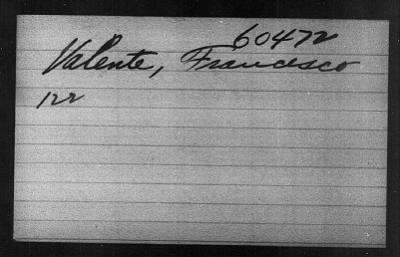 60472
Valente, Francesco
122